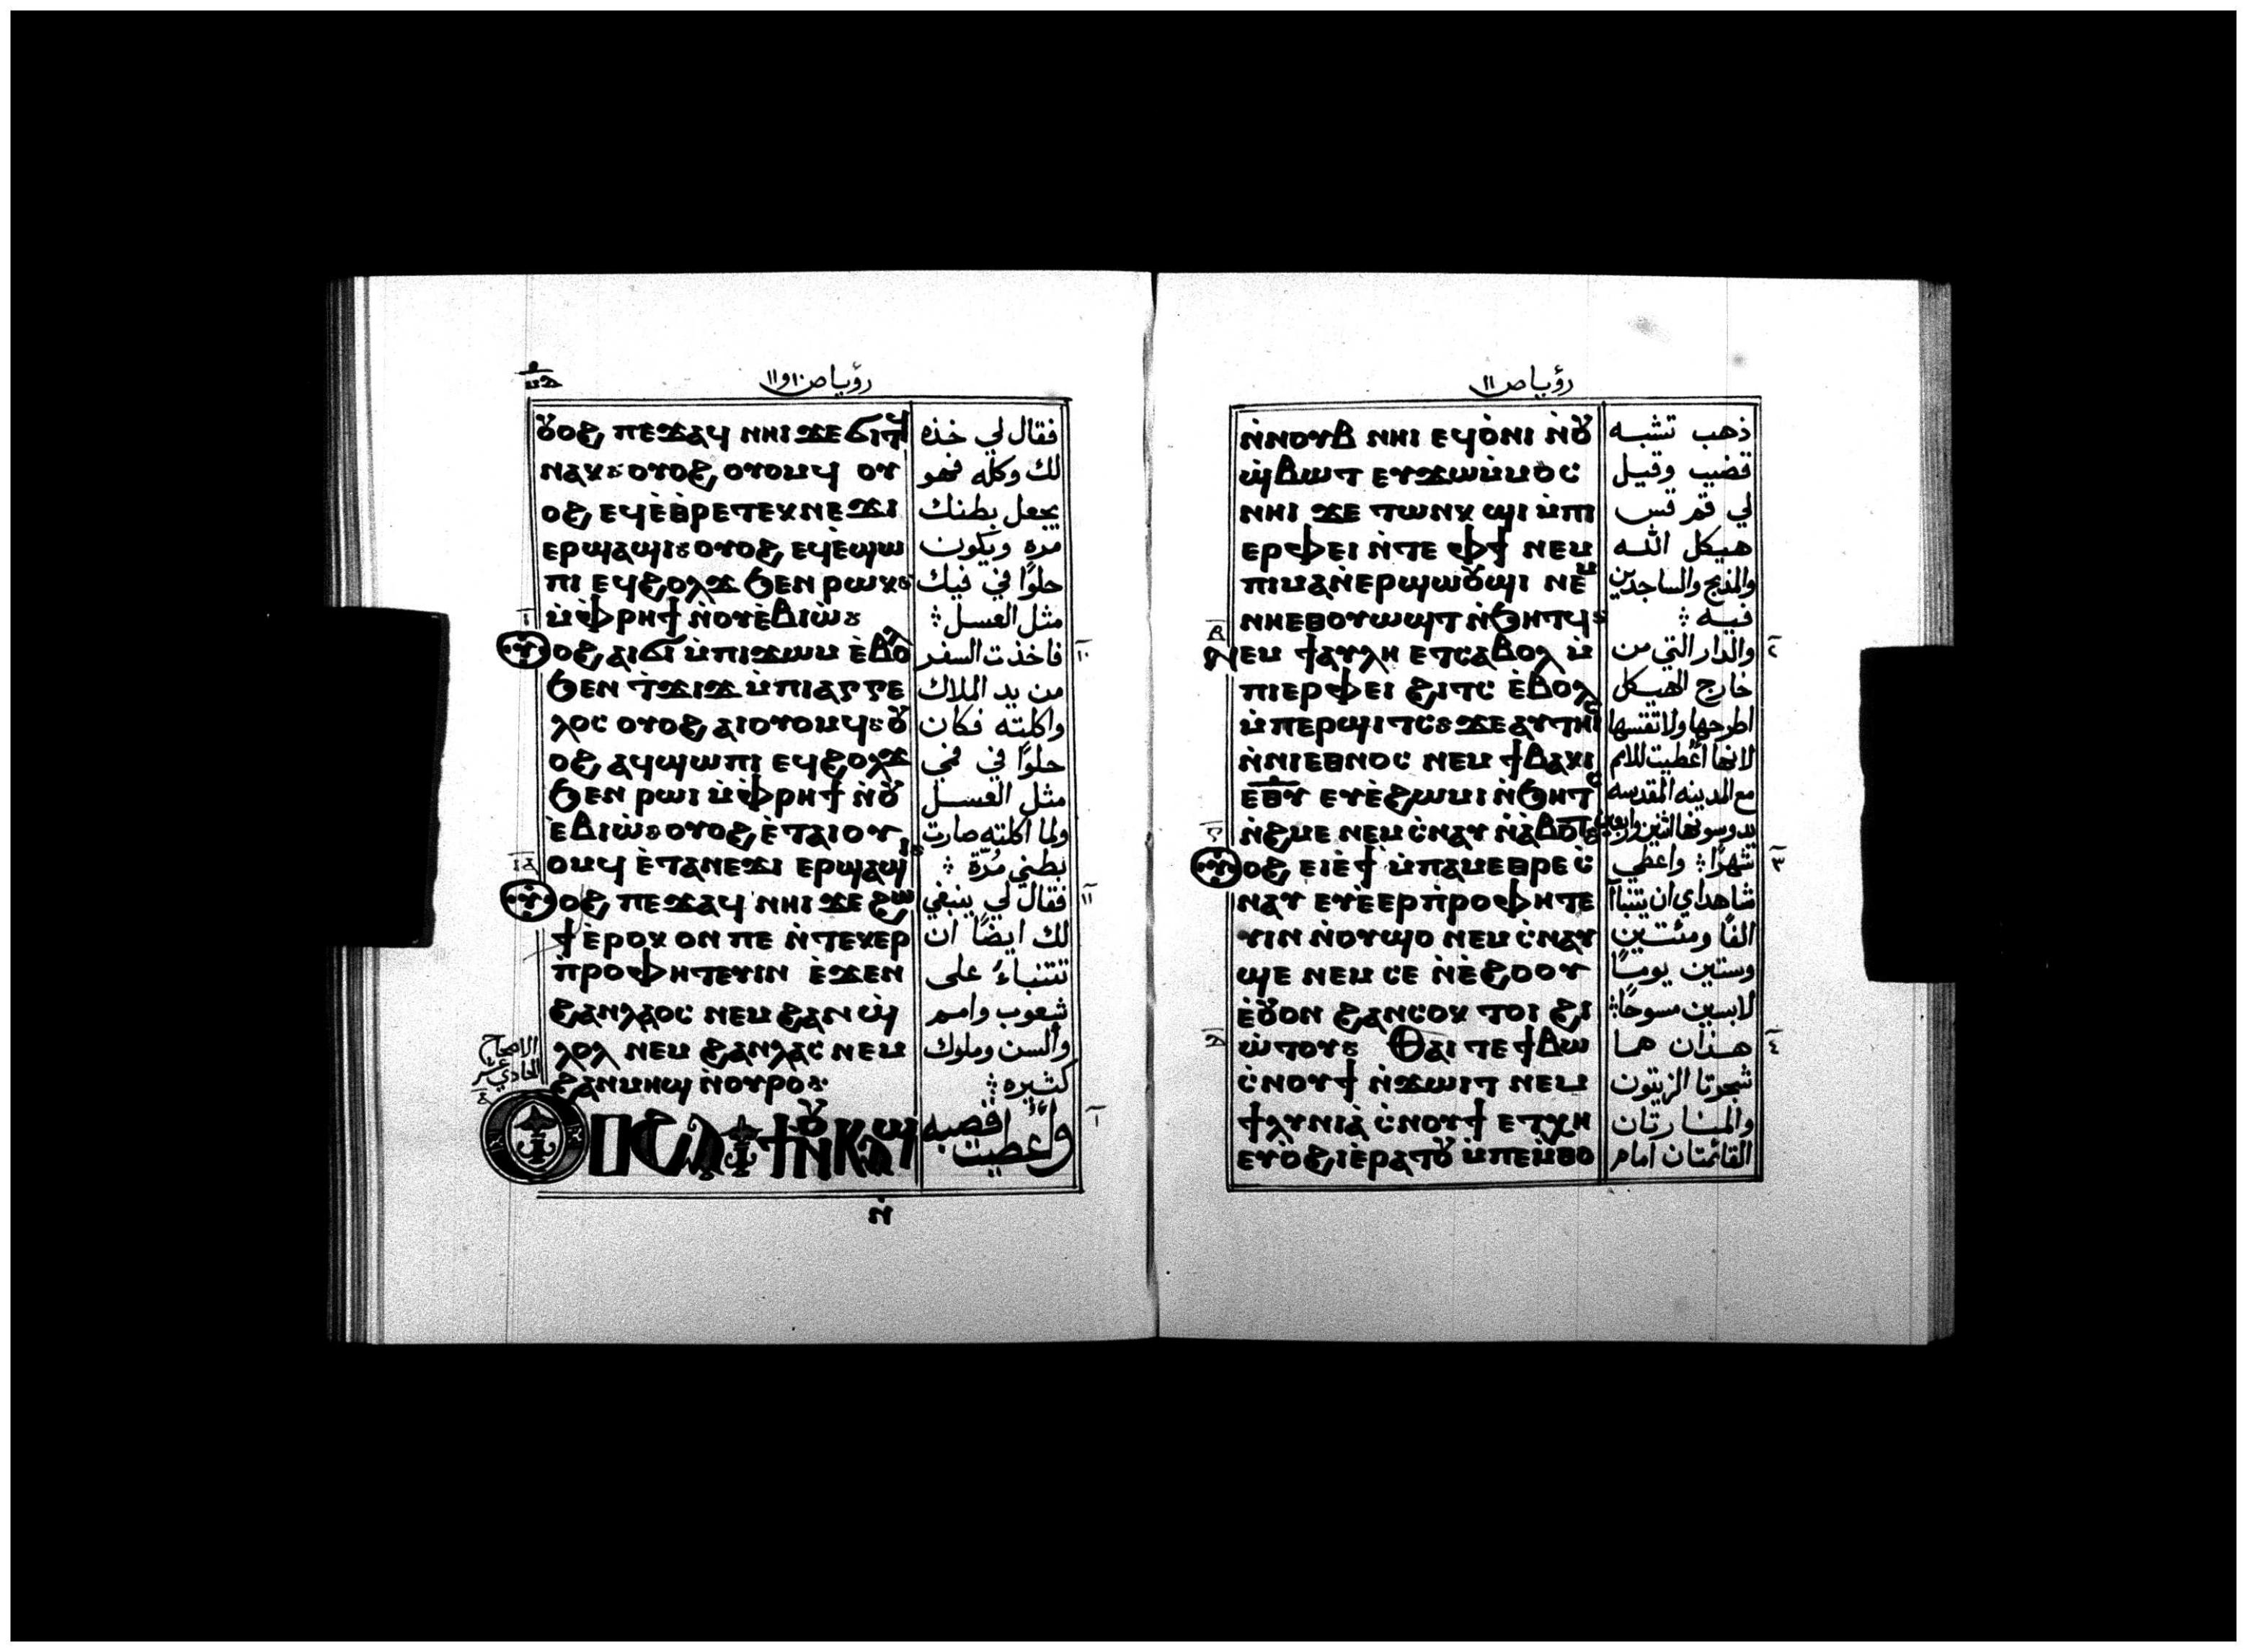 رؤيا ص ١٠ و ١١
ⲟⲩⲟϩ ⲡⲉϫⲁϥ ⲛⲏⲓ ϫⲉ ϭⲓⲧϥ
ⲛⲁⲕ: ⲟⲩⲟϩ ⲟⲩⲟⲙϥ ⲟⲩ
ⲟϩ ⲉϥⲉ̀ⲑⲣⲉⲧⲉⲕⲛⲉϫⲓ
ⲉⲣϣⲁϣⲓ: ⲟⲩⲟϩ ⲉϥⲉ̀ϣⲱ
ⲡⲓ ⲉϥϩⲟⲗϫ ϧⲉⲛ ⲣⲱⲕ:
ⲙ̀ⲫⲣⲏϯ ⲛ̀ⲟⲩⲉ̀ⲃⲓⲱ̀:
ⲟⲩⲟϩ ⲁⲓϭⲓ ⲙ̀ⲡⲓϫⲱⲙ ⲉ̀ⲃⲟⲗ
ϧⲉⲛ ⲧ̀ϫⲓϫ ⲙ̀ⲡⲓⲁⲅⲅⲉ
ⲗⲟⲥ ⲟⲩⲟϩ ⲁⲓⲟⲩⲟⲙϥ: ⲟⲩ
ⲟϩ ⲁϥϣⲱⲡⲓ ⲉϥϩⲟⲗϫ
ϧⲉⲛ ⲣⲱⲓ ⲙ̀ⲫⲣⲏϯ ⲛ̀ⲟⲩ
ⲉ̀ⲃⲓⲱ̀: ⲟⲩⲟϩ ⲉ̀ⲧⲁⲓⲟⲩ
ⲟⲙϥ ⲉ̀ⲧⲁⲛⲉϫⲓ ⲉⲣϣⲁϣⲓ:
ⲟⲩⲟϩ ⲡⲉϫⲁϥ ⲛⲏⲓ ϫⲉ ϩⲱ
ϯ ⲉ̀ⲣⲟⲕ ⲟⲛ ⲡⲉ ⲛ̀ⲧⲉⲕⲉⲣ
ⲡ̀ⲣⲟⲫⲏⲧⲉⲩⲓⲛ ⲉ̀ϫⲉⲛ
ϩⲁⲛⲗⲁⲟⲥ ⲛⲉⲙ ϩⲁⲛ ϣ̀
ⲗⲟⲗ ⲛⲉⲙ ϩⲁⲛⲗⲁⲥ ⲛⲉⲙ
ϩⲁⲛⲙⲏϣ ⲛ̀ⲟⲩⲣⲟ:
ⲟⲩⲟϩ ⲁⲩϯ ⲛ̀ⲟⲩⲕⲁϣ
ⲛ̀
فقال لي خذه
لك وكله فهو
يجعل بطنك
مره ويكون
حلوًا في فيك
مثل العسل
١٠ فاخذت السفر
من يد الملاك
واكلته فكان
حلوًا في فمي
مثل العسل
ولما اكلته صارت
بطني مُرّة
١١ فقال لي ينبغي
لك ايضًا ان
تتنباء على
شعوب وامم
وألسن وملوك
كثيره
الاصحاح
الحادي عشر
١ وأعطيت قصبه
رؤيا ص ١١
ⲛ̀ⲛⲟⲩⲃ ⲛⲏⲓ ⲉϥⲟ̀ⲛⲓ ⲛ̀ⲟⲩ
ϣ̀ⲃⲱⲧ ⲉⲩϫⲱⲙ̀ⲙⲟⲥ
ⲛⲏⲓ ϫⲉ ⲧⲱⲛⲕ ϣⲓ ⲙ̀ⲡⲓ
ⲉⲣⲫⲉⲓ ⲛ̀ⲧⲉ ⲫϯ ⲛⲉⲙ
ⲡⲓⲙⲁⲛ̀ⲉⲣϣⲱⲟⲩϣⲓ ⲛⲉⲙ
ⲛⲏⲉⲑⲟⲩⲱϣⲧ ⲛ̀ϧⲏⲧϥ:
ⲛⲉⲙ ϯⲁⲩⲗⲏ ⲉⲧⲥⲁⲃⲟⲗ ⲙ̀
ⲡⲓⲉⲣⲫⲉⲓ ϩⲓⲧⲥ ⲉ̀ⲃⲟⲗ
ⲙ̀ⲡⲉⲣϣⲓⲧⲥ: ϫⲉ ⲁⲩⲧⲏⲓⲥ
ⲛ̀ⲛⲓⲉⲑⲛⲟⲥ ⲛⲉⲙ ϯⲃⲁⲕⲓ
ⲉⲑⲩ ⲉⲩⲉ̀ϩⲱⲙⲓ ⲛ̀ϧⲏⲧⲥ
ⲛ̀ϩⲙⲉ ⲛⲉⲙ ⲥ̀ⲛⲁⲩ ⲛ̀ⲁ̀ⲃⲟⲧ:
ⲟⲩⲟϩ ⲉⲓⲉ̀ϯ ⲙ̀ⲡⲁⲙⲉⲑⲣⲉ ⲥ̀
ⲛⲁⲩ ⲉⲩⲉ̀ⲉⲣⲡ̀ⲣⲟⲫⲏⲧⲉ
ⲩⲓⲛ ⲛ̀ⲟⲩϣⲟ ⲛⲉⲙ ⲥ̀ⲛⲁⲩ
ϣⲉ ⲛⲉⲙ ⲥⲉ ⲛ̀ⲉ̀ϩⲟⲟⲩ
ⲉ̀ⲟⲩⲟⲛ ϩⲁⲛⲥⲟⲕ ⲧⲟⲓ ϩⲓ
ⲱ̀ⲧⲟⲩ: Ⲑⲁⲓ ⲧⲉ ϯⲃⲱ
ⲥ̀ⲛⲟⲩϯ ⲛ̀ϫⲱⲓⲧ ⲛⲉⲙ
ϯⲗⲩⲭⲛⲓⲁ̀ ⲥ̀ⲛⲟⲩϯ ⲉⲧⲭⲏ
ⲉⲩⲟ̀ϩⲓⲉ̀ⲣⲁⲧⲟⲩ ⲙ̀ⲡⲉⲙ̀ⲑⲟ
ذهب تشبه
قضيب وقيل
لي قم قس
هيكل الله
والمذبح والساجدين
فيه
٢ والدار التي من
خارج الهيكل
اطرحها ولا تقسها
لانها أعطيت للامم
مع المدينه المقدسه
يدوسونها اثنين واربعين
٣ شهرًا واعطي
شاهداي ان يتنبآ
الفًا ومئتين
وستين يومًا
لابسين مسوحًا
٤ هذان هما
شجرتا الزيتون
والمنارتان
القائمتان امام